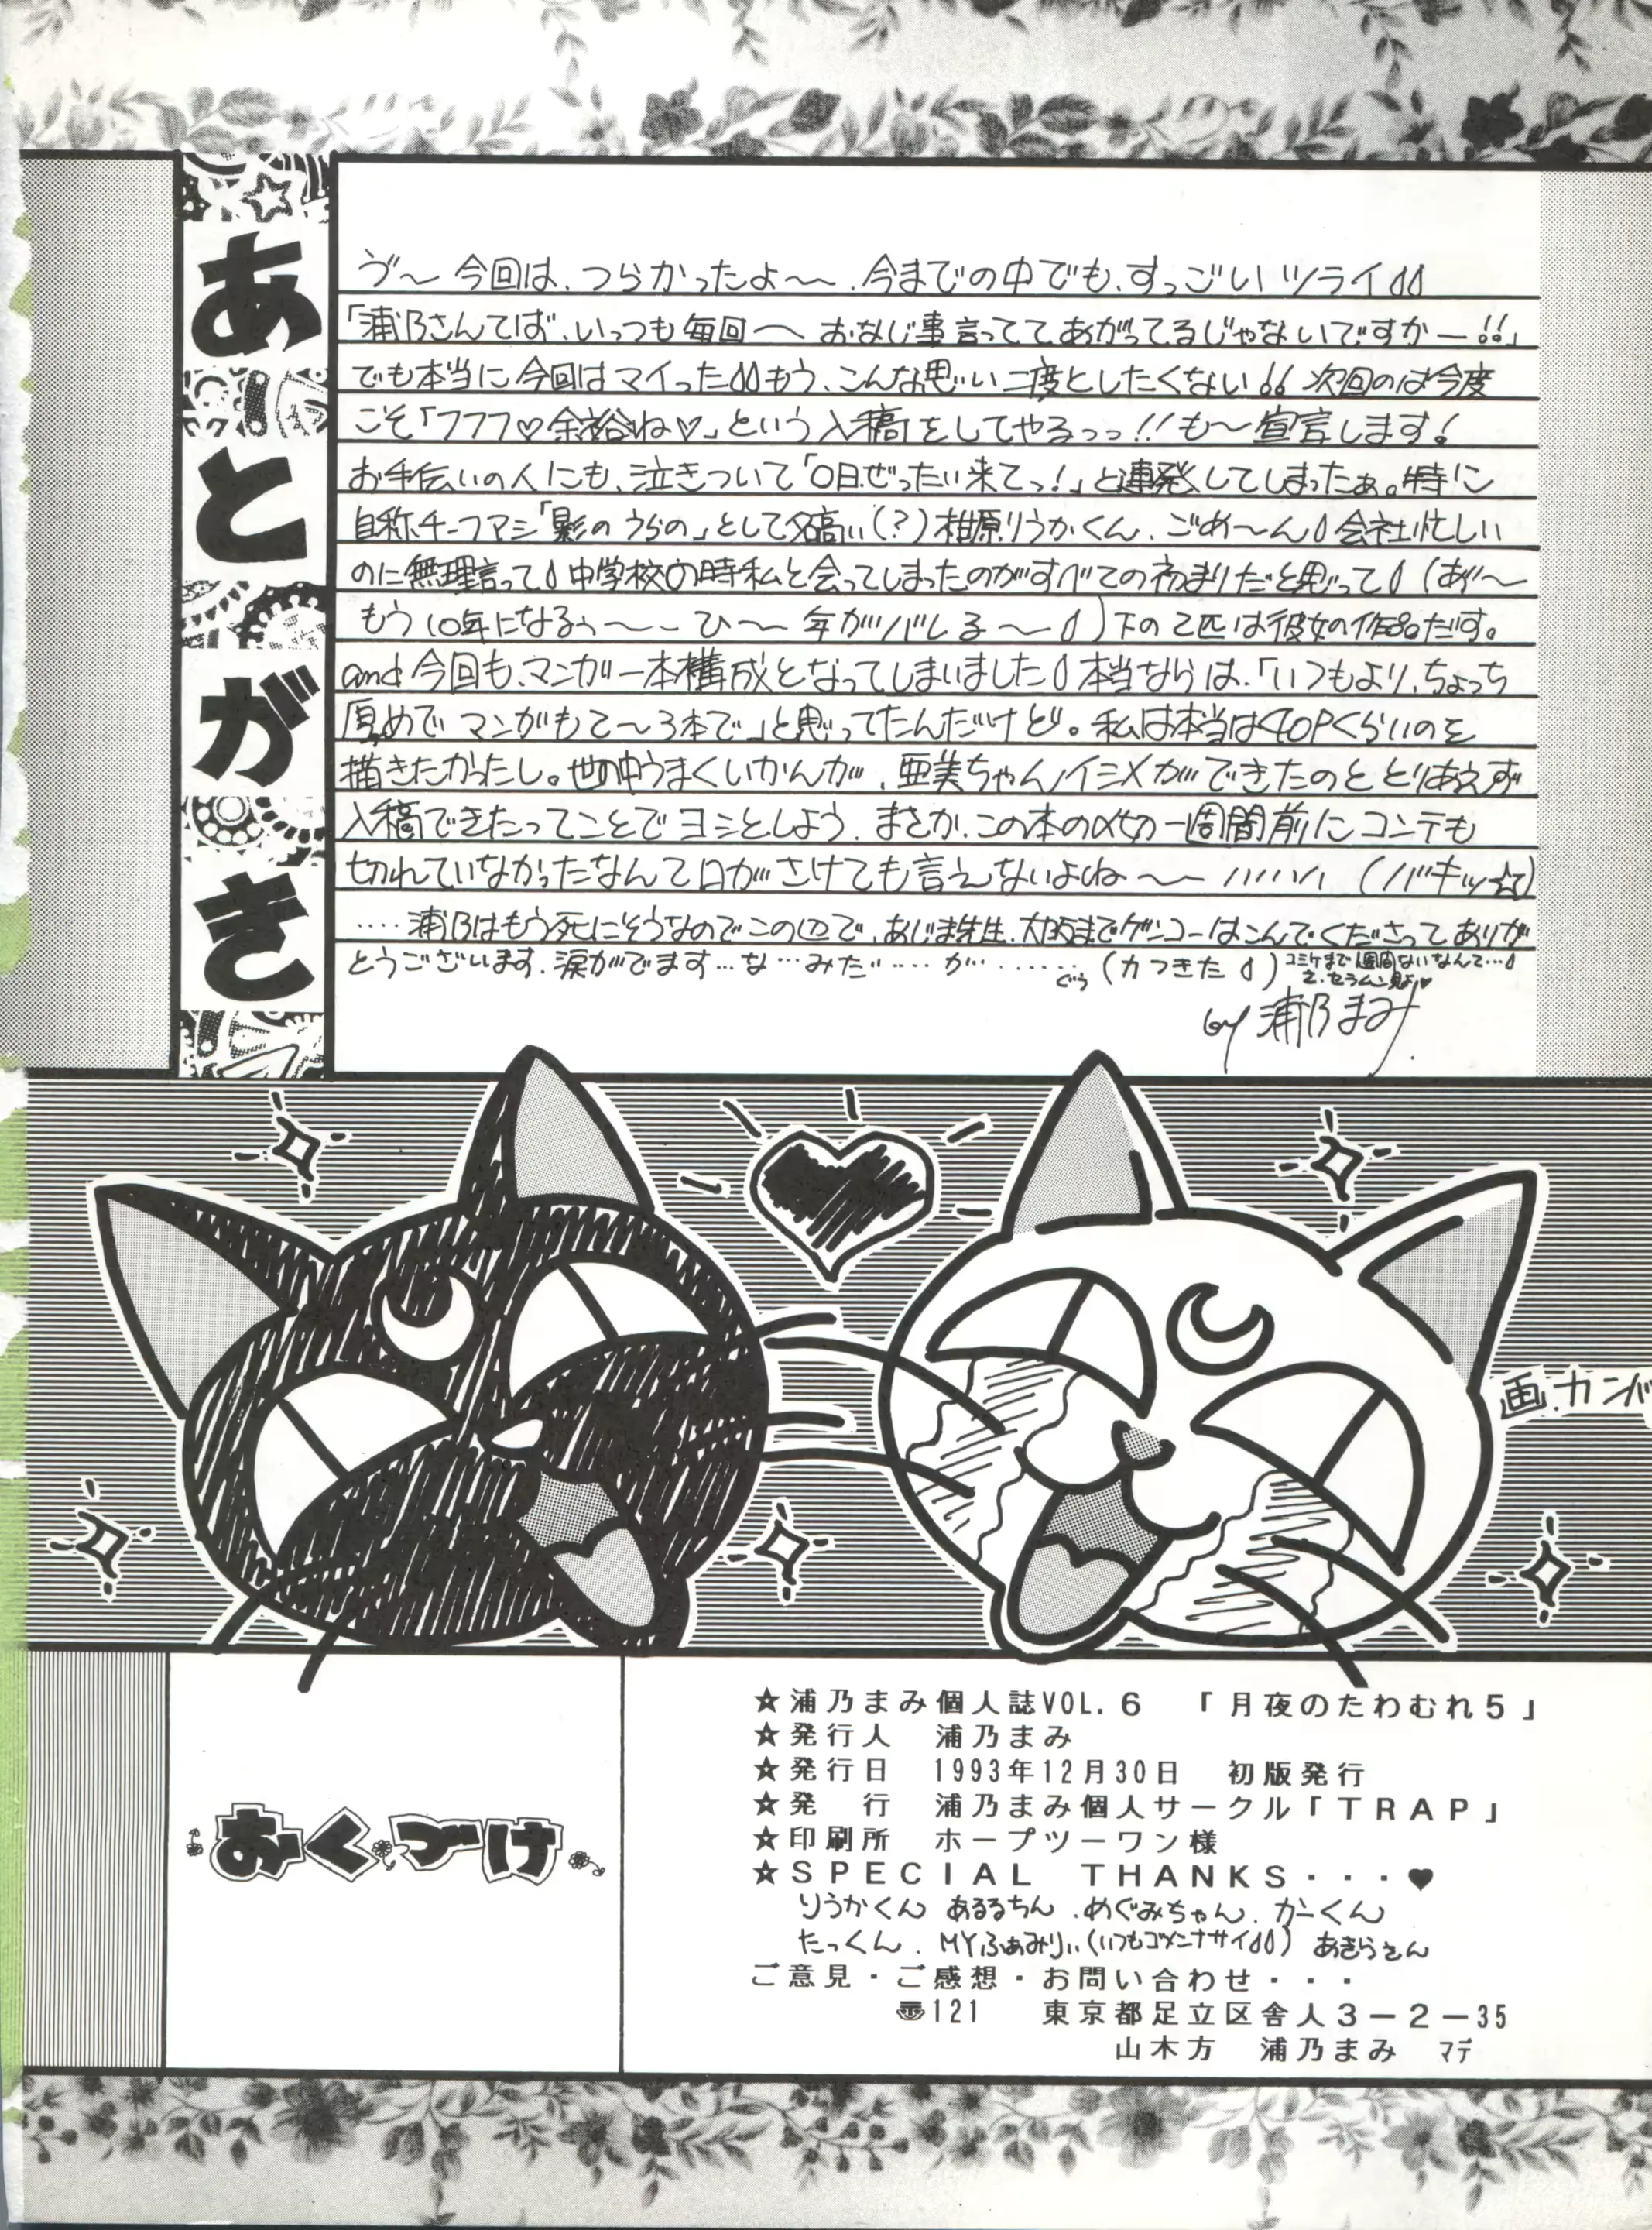 あとがき
ヴ〜 今回は、つらかったよ〜〜、今までの中でも、すっごいツライ
「浦乃さんてば、いっつも毎回〜 おなじ事言ってて あがってるじゃないですかー!!」
でも本当に今回はマイったもう、こんな思い二度としたくない!! 次回のは今度
こそ「フフフ♡余裕ね♡」という入稿をしてやるっっ!!も〜宣言します!
お手伝いの人にも、泣きついて「〇日ぜったい来てっ!」と連発してしまったぁ。特に
自称チーフアシ「影のうらの」として名高い(?)相原りうかくん、ごめ〜ん 会社忙しい
のに無理言って 中学校の時私と会ってしまったのがすべての初まりだと思って (あ゙〜
もう10年になるぅ〜〜 ひ〜〜 年がバレる〜) 下の2匹は彼女の作品だす。
and 今回も、マンガ一本構成となってしまいました 本当ならば、「いつもより、ちょっち
厚めで マンガも2〜3本で」と思ってたんだけど。私は本当は40Pくらいのを
描きたかったし。世の中うまくいかんが、亜美ちゃんイジメができたのと とりあえず
入稿できたってことで ヨシとしよう、まさか、この本の〆切一週間前に コンテも
切れていなかったなんて口がさけても言えないよね〜〜 ハハハハ (バキッ☆)
‥‥浦乃はもう死にそうなのでこの辺で、あじま先生、大阪までゲンコーはこんでくださって ありが
とうございます、涙がでます…な…みだ…‥ が…‥‥‥ ぐぅ (力つきた)
コミケまで1週間ないなんて…
by 浦乃まみ
画.カンバ
おくづけ
☆浦乃まみ個人誌VOL.6 「月夜のたわむれ5」
☆発行人 浦乃まみ
☆発行日 1993年12月30日 初版発行
☆発 行 浦乃まみ個人サークル「TRAP」
☆印刷所 ホープツーワン様
☆SPECIAL THANKS・・・♥
りうかくん あるるちん、めぐみちゃん、かーくん
たっくん、MYふぁみりぃ(いつもゴメンナサイ) あきらさん
ご意見・ご感想・お問い合わせ・・・
〠121 東京都足立区舎人3-2-35
山木方 浦乃まみ マデ